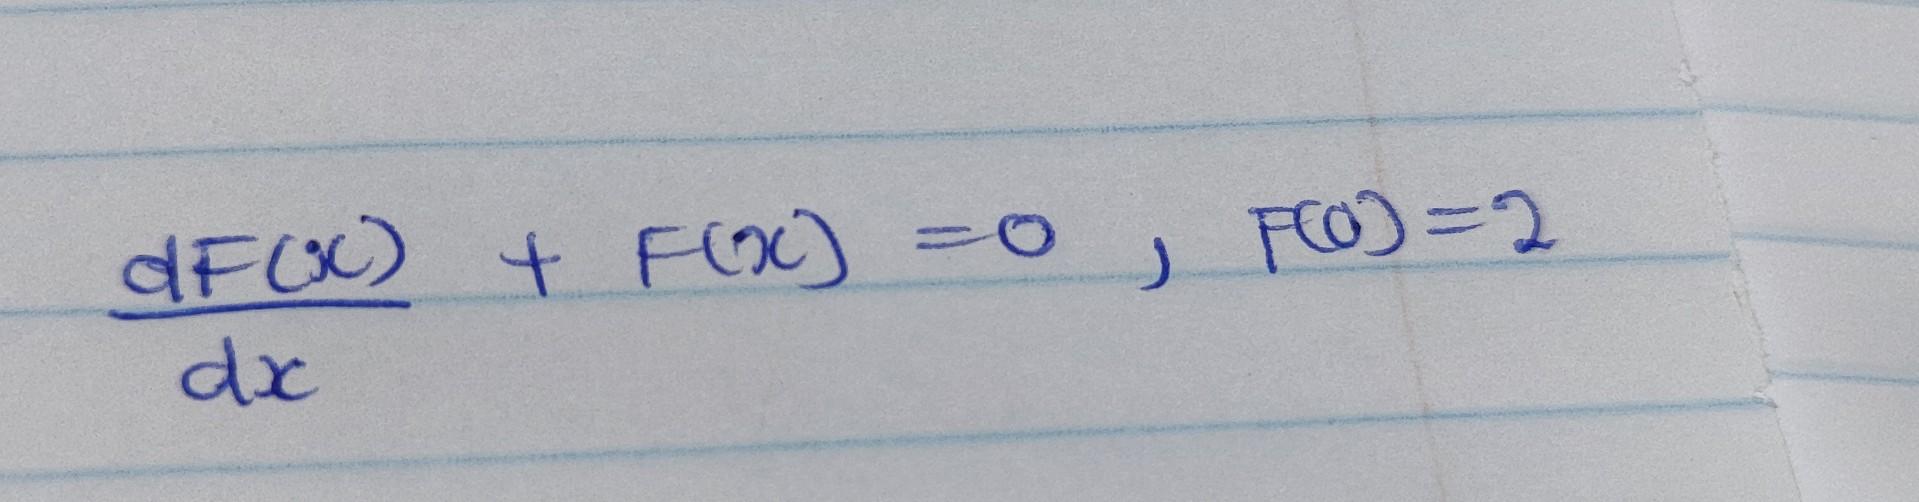 dF(x)/dx + F(x) = 0 , F(0) = 2